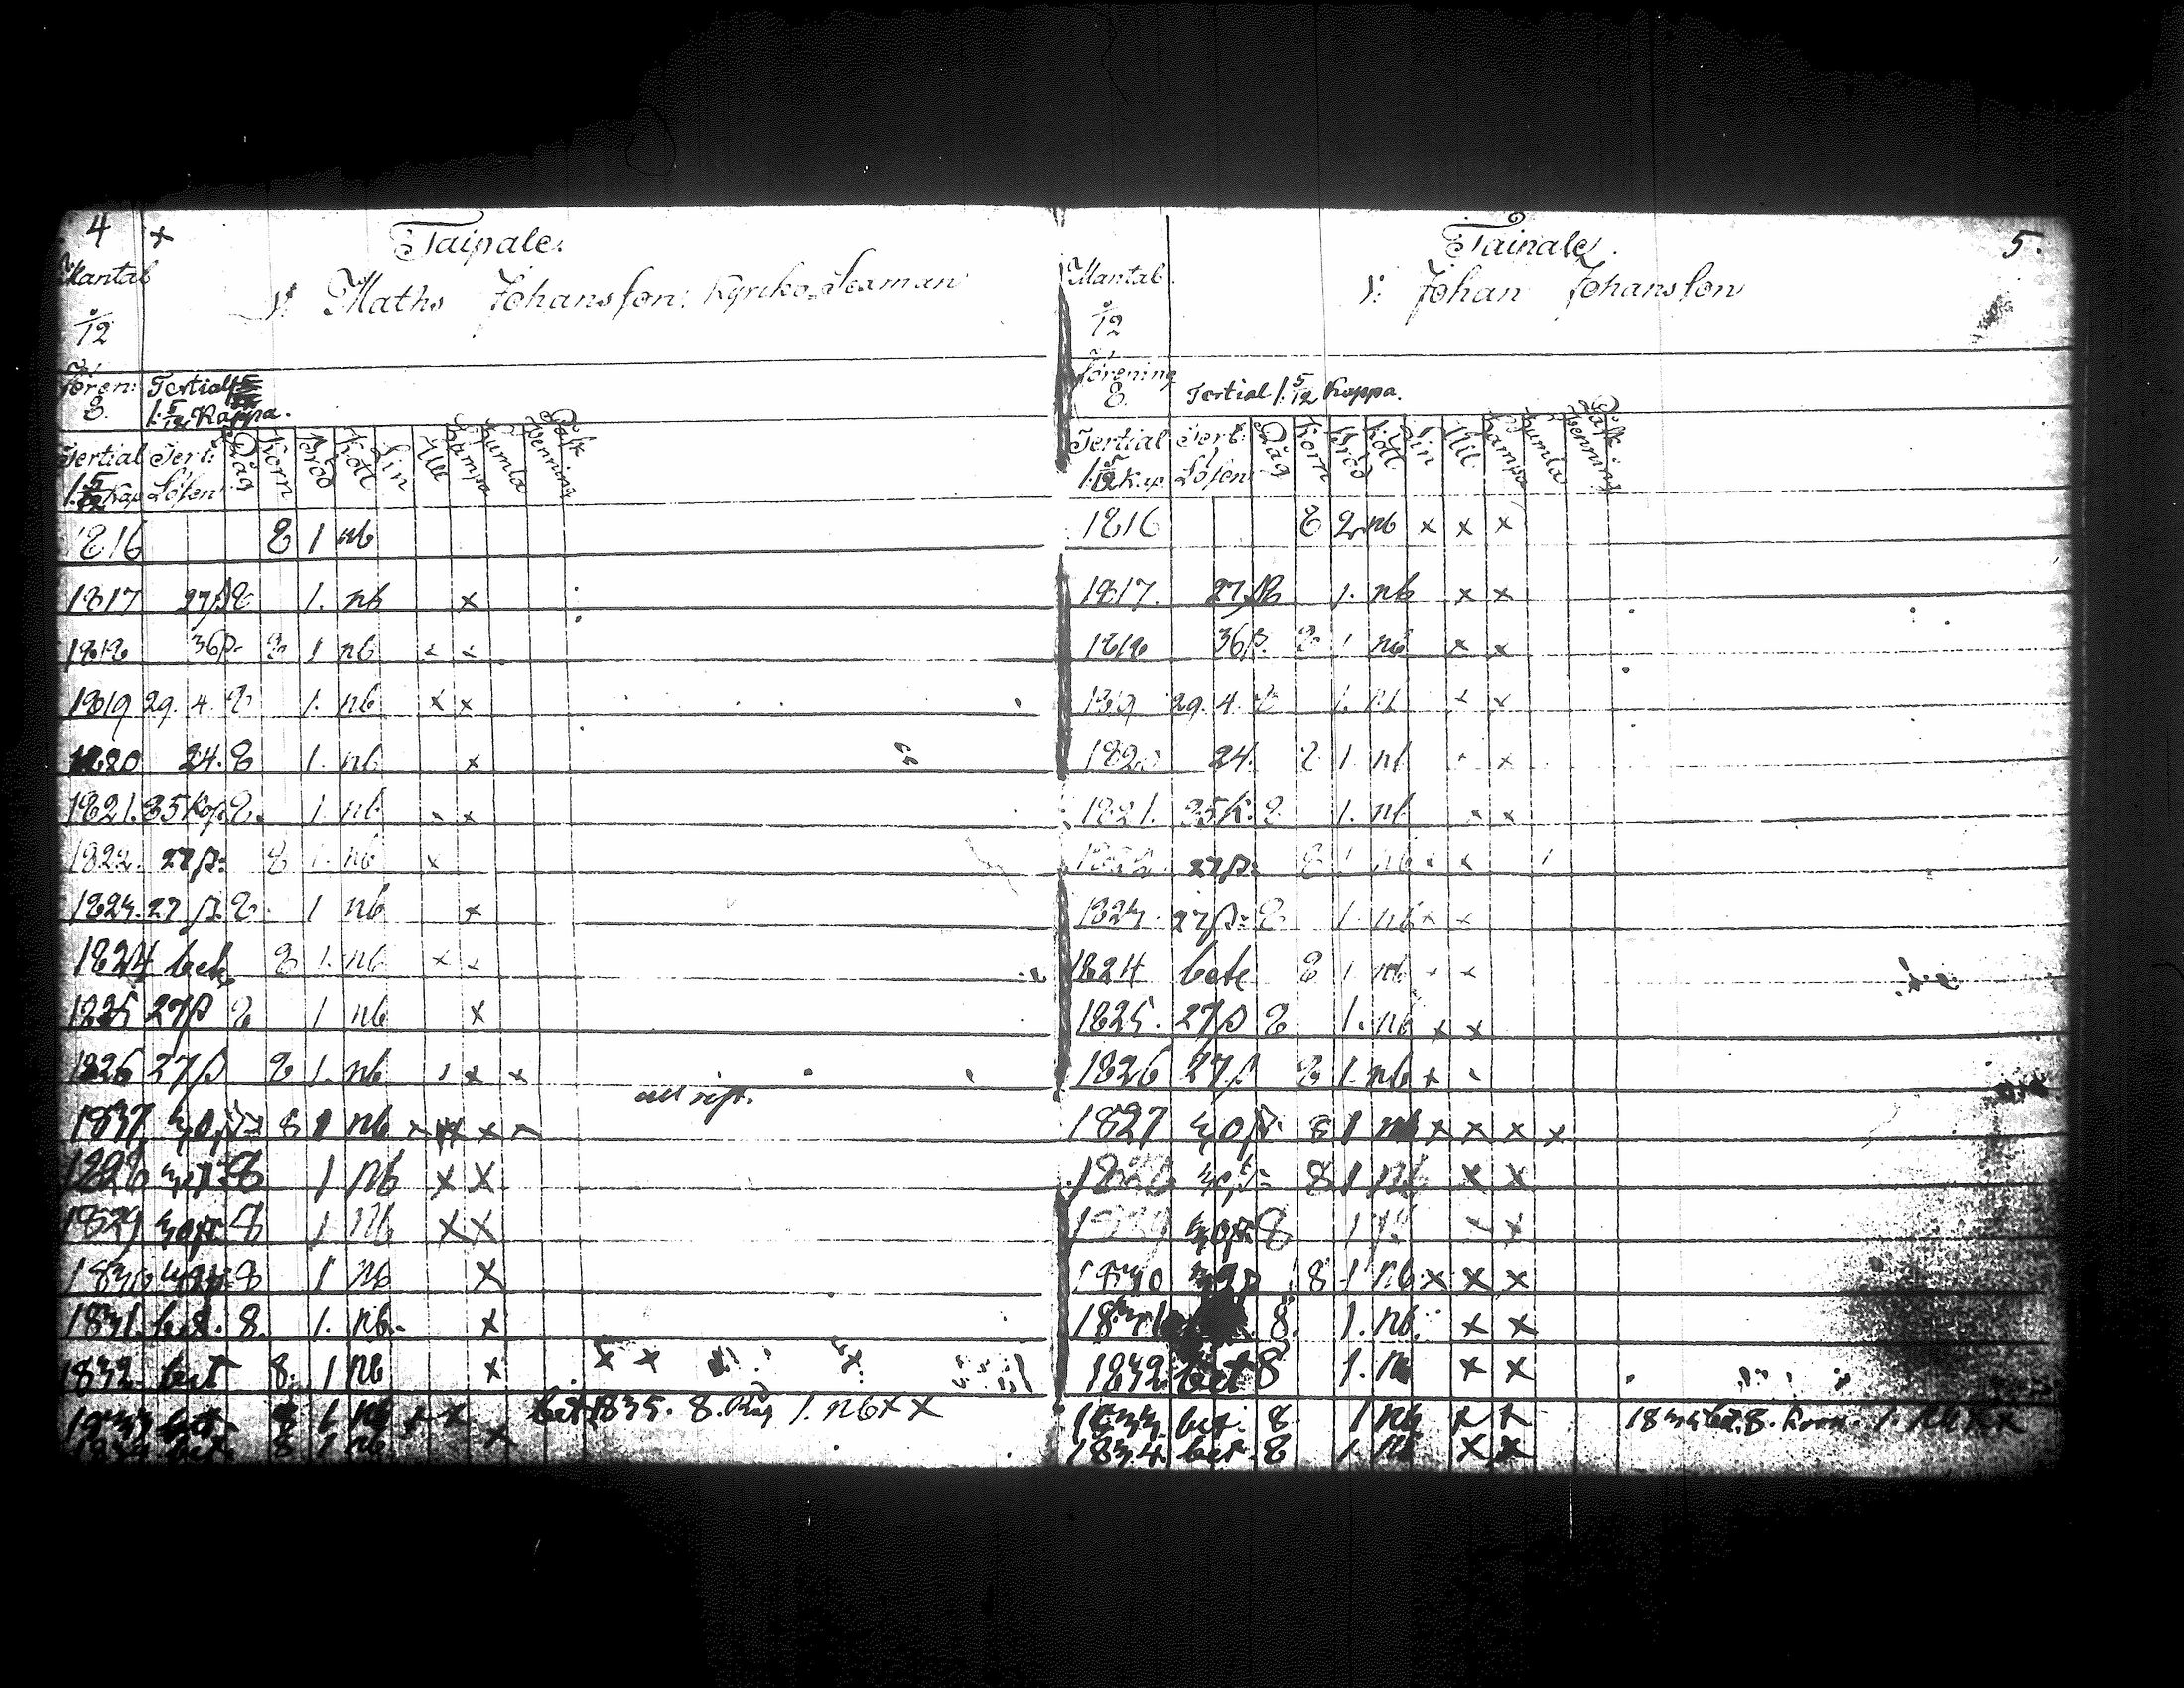 4 x Taipale.
Mantal
5/12
N: Maths Johansson: Kyrko-Sexman
Tertial
1. 5/12 Kappa.
8.
Tertial Terti: Råg Korn Bröd Kött Lin Ull Hampa Humla Påsk
1. 5/12 Kap Lösen penning
1816 8 1 nb
1817 27β 8 1. nb x
1818 36β. 8 1 nb x x
1819 29. 4. 8 1. nb x x
1820 24. 8 1. nb x
1821. 35 Kop. 8. 1. nb x x
1822. 27β: 8 1. nb x
1823. 27 β. 8 1 nb x
1824 bet 8 1. nb x x
1825 27β 8 1 nb x
1826 27β 8 1. nb x x x
8 1 nb x x x
1828 8 1 nb x x
1829 8 1 nb x x
1830 8 1 nb x
1831. bet. 8. 1. nb. x
1832 bet 8. 1 nb x
1833 bet. 8 1 nb x x bet 1835. 8. Råg 1. nb x x
1834 bet. 8. 1 nb. x
5.
Taipale.
Mantal
5/12
N: Johan Johansson
Förening
8. Tertial 1. 5/12 Kappa.
Tertial Terti: Råg Korn Bröd Kött Lin Ull Hampa Humla Påsk
1. 5/12 Kap Lösen penning
1816 8 2 nb x x x
1817. 27β 8 1. nb x x
1818 36β. 8 1 nb x x
1819 29. 4. 8 1. nb x x
1820 24. 8 1. nb x x
1821. 35 K. 8. 1. nb x x
1822. 27β: 8 1 nb x x
1823. 27β: 8 1. nb x x
1824 bete 8 1 nb x x
1825. 27β 8 1. nb x x
1826 27β 8 1. nb x
1827 30β. 8 1 nb x x x x
1828 8 1 nb x x
1829 30β: 8 1 nb x x
1830 8 1 nb x x x
1831 8. 1. nb. x x
1832 bet 8 1. n x x
1833 bet. 8. 1 nb x x 8. Korn. 1. nb x x
1834. bet. 8 1. nb x x